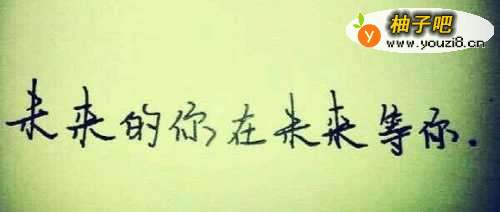 柚子吧
www.youzi8.cn
未来的你,在未来等你.